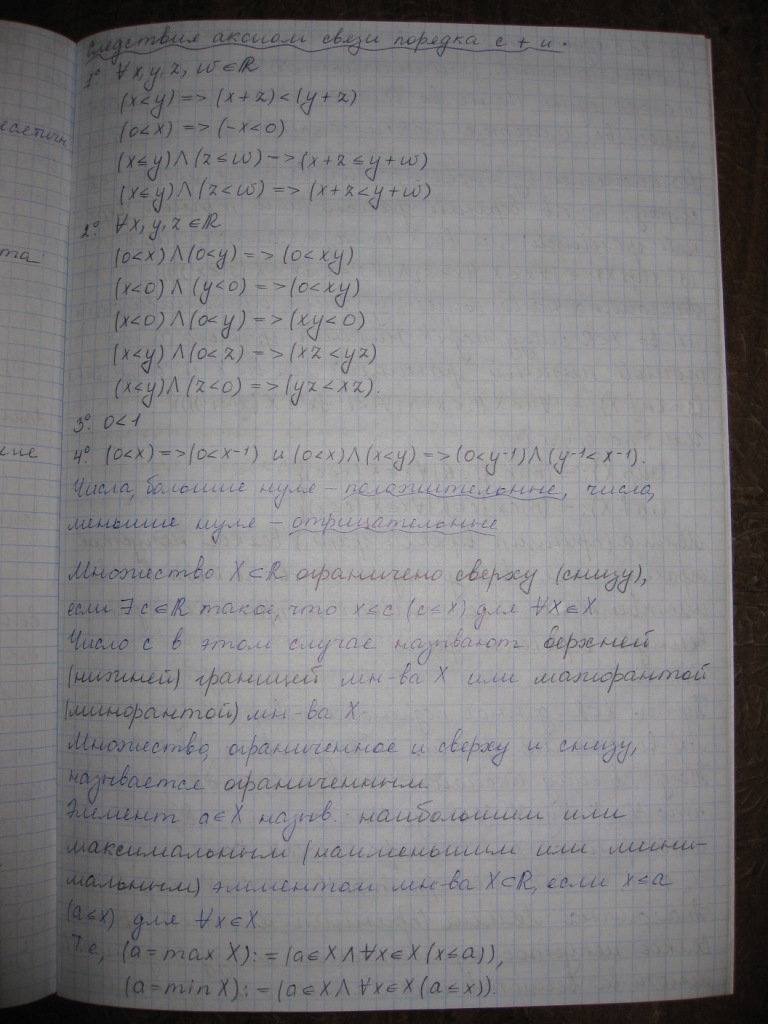 Следствия аксиом связи порядка с + и ·
1° ∀x,y,z,w∈ℝ
(x<y) => (x+z)<(y+z)
(0<x) => (-x<0)
(x≤y)∧(z≤w) –> (x+z≤y+w)
(x≤y)∧(z<w) => (x+z<y+w)
2° ∀x,y,z∈ℝ
(0<x)∧(0<y) => (0<xy)
(x<0)∧(y<0) => (0<xy)
(x<0)∧(0<y) => (xy<0)
(x<y)∧(0<z) => (xz<yz)
(x<y)∧(z<0) => (yz<xz).
3° 0<1
4° (0<x) => (0<x-1) и (0<x)∧(x<y) => (0<y-1)∧(y-1<x-1).
Числа, большие нуля – положительные, числа,
меньшие нуля – отрицательные
Множество X⊂ℝ ограничено сверху (снизу),
если ∃c∈ℝ такое, что x≤c (c≤x) для ∀x∈X
Число c в этом случае называют верхней
(нижней) границей мн-ва X или мажорантой
(минорантой) мн-ва X.
Множество, ограниченное и сверху и снизу,
называется ограниченным
Элемент a∈X назыв. наибольшим или
максимальным (наименьшим или мини-
мальным) элементом мн-ва X⊂ℝ, если x≤a
(a≤x) для ∀x∈X
Т.е, (a=max X):=(a∈X∧∀x∈X(x≤a)),
(a=min X):=(a∈X∧∀x∈X(a≤x)).
та